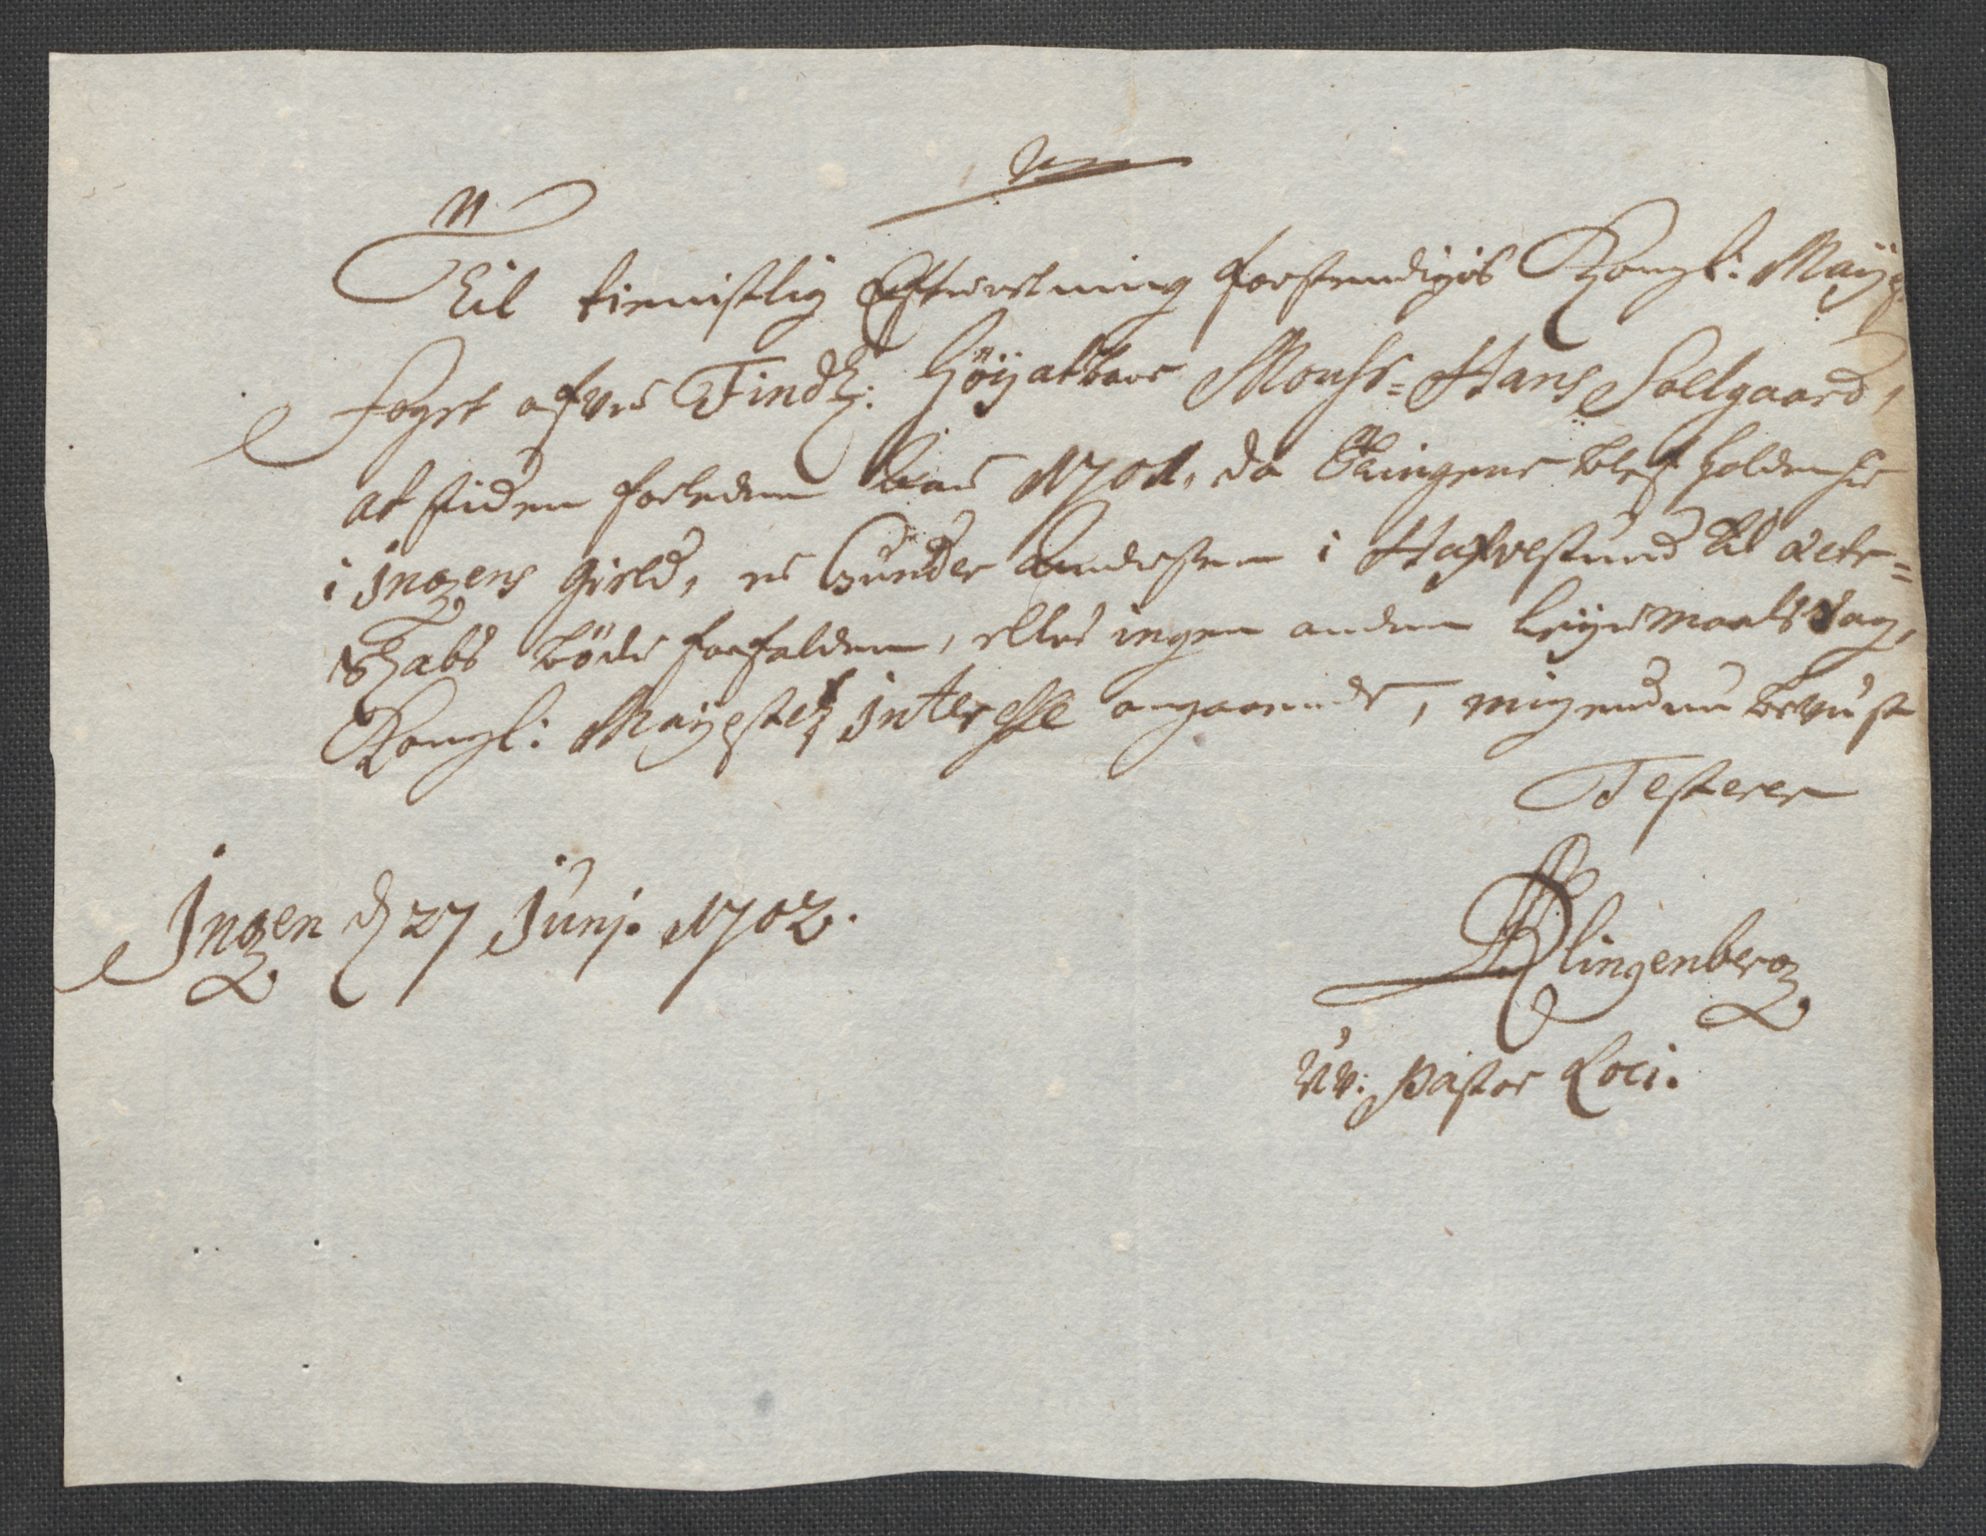 Til tienistlig Efterretning forstendigis Kongl: Mayts
Fogt ofver Findm: Höyactbare Monsr= Hans Sollgaard,
at siden forleden Aar 1701, da Tingene blef holden her
i Ingens gield, er Gunder Andersen i Hafvesund til Ecte=
skabs böde forfalden, ellers ingen anden leyermaals sag,
Kongl: Mayestetz interesse angaaende, mig endnu bevust
Testerer
Ingen d 27 Junj. 1702.
Klingenberg
Vv. Pastor Loci.